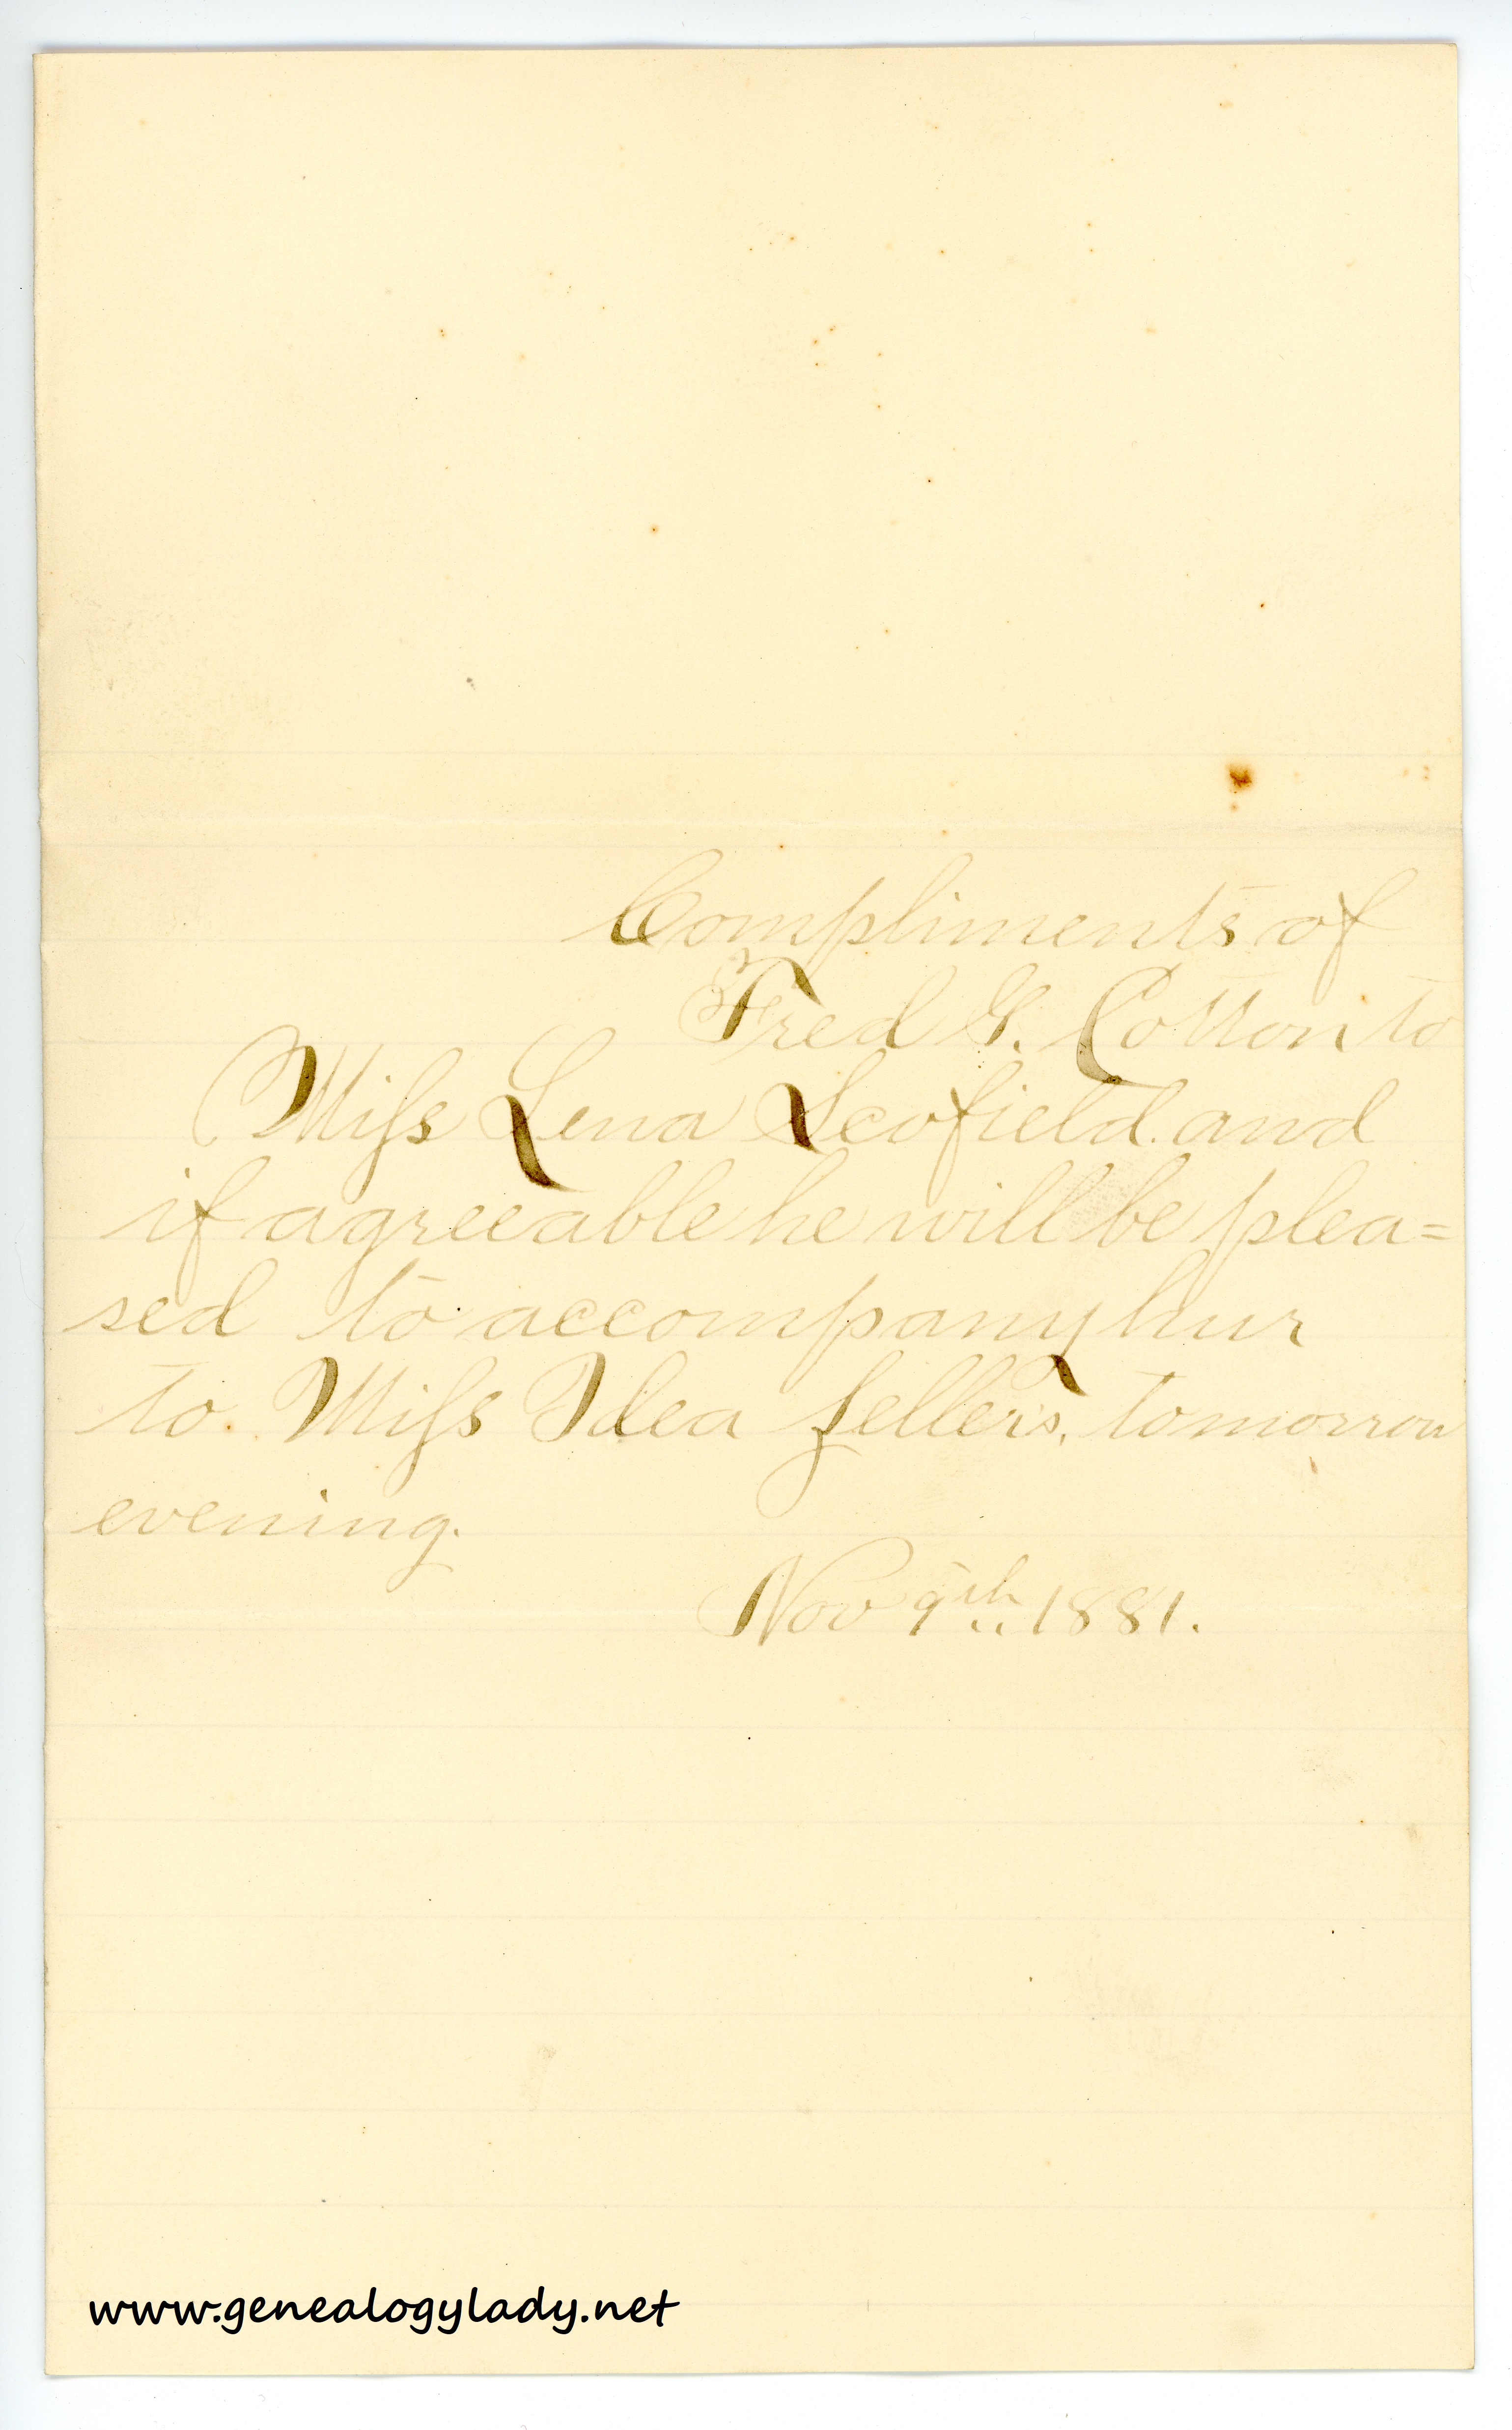 Compliments of
Fred G. Cotton to
Miss Lena Scofield. and
if agreeable he will be plea=
sed to accompany hur
to Miss Idea fellers, tomorrow
evening.
Nov 9th 1881.
www.genealogylady.net